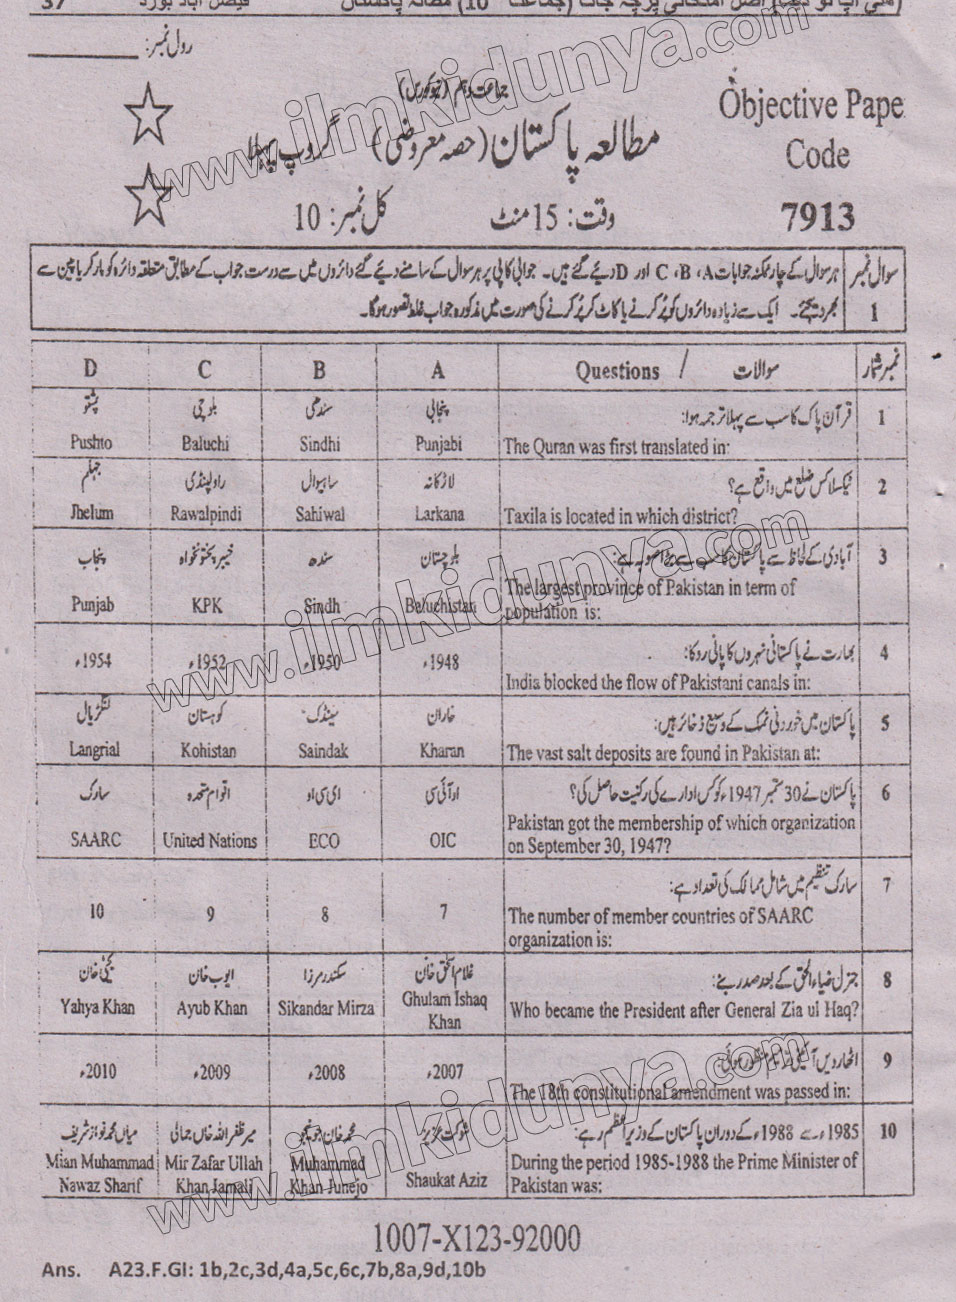 رول نمبر:
جماعت دہم (نیو کورس)
مطالعہ پاکستان (حصہ معروضی) گروپ پہلا
وقت: 15 منٹ کل نمبر: 10
Objective Pape
Code
7913
سوال نمبر 1
ہر سوال کے چار ممکنہ جوابات A، B، C اور D دیئے گئے ہیں۔ جوابی کاپی پر ہر سوال کے سامنے دیئے گئے دائروں میں سے درست جواب کے مطابق متعلقہ دائرہ کو مارکر یا پین سے
بھر دیجئے۔ ایک سے زیادہ دائروں کو پُر کرنے یا کاٹ کر پُر کرنے کی صورت میں مذکورہ جواب غلط تصور ہوگا۔
D C B A Questions / سوالات نمبر شمار
پشتو بلوچی سندھی پنجابی قرآن پاک کا سب سے پہلا ترجمہ ہوا: 1
Pushto Baluchi Sindhi Punjabi The Quran was first translated in:
جہلم راولپنڈی ساہیوال لاڑکانہ ٹیکسلا کس ضلع میں واقع ہے؟ 2
Jhelum Rawalpindi Sahiwal Larkana Taxila is located in which district?
پنجاب خیبر پختونخواہ سندھ بلوچستان آبادی کے لحاظ سے پاکستان کا سب سے بڑا صوبہ ہے: 3
Punjab KPK Sindh Baluchistan The largest province of Pakistan in term of
population is:
1954ء 1952ء 1950ء 1948ء بھارت نے پاکستانی نہروں کا پانی روکا: 4
India blocked the flow of Pakistani canals in:
لنگڑیال کوہستان سینڈک خاران پاکستان میں خوردنی نمک کے وسیع ذخائر ہیں: 5
Langrial Kohistan Saindak Kharan The vast salt deposits are found in Pakistan at:
سارک اقوام متحدہ ای سی او او آئی سی پاکستان نے 30 ستمبر 1947ء کو کس ادارے کی رکنیت حاصل کی؟ 6
SAARC United Nations ECO OIC Pakistan got the membership of which organization
on September 30, 1947?
سارک تنظیم میں شامل ممالک کی تعداد ہے: 7
10 9 8 7 The number of member countries of SAARC
organization is:
یحییٰ خان ایوب خان سکندر مرزا غلام اسحٰق خان جنرل ضیاء الحق کے بعد صدر بنے: 8
Yahya Khan Ayub Khan Sikandar Mirza Ghulam Ishaq Khan Who became the President after General Zia ul Haq?
2010ء 2009ء 2008ء 2007ء اٹھارویں آئینی ترمیم منظور ہوئی: 9
The 18th constitutional amendment was passed in:
میاں محمد نواز شریف میر ظفر اللہ خاں جمالی محمد خان جونیجو شوکت عزیز 1985ء سے 1988ء کے دوران پاکستان کے وزیر اعظم رہے: 10
Mian Muhammad Nawaz Sharif Mir Zafar Ullah Khan Jamali Muhammad Khan Junejo Shaukat Aziz During the period 1985-1988 the Prime Minister of
Pakistan was:
1007-X123-92000
Ans. A23.F.GI: 1b,2c,3d,4a,5c,6c,7b,8a,9d,10b
www.ilmkidunya.com
www.ilmkidunya.com
www.ilmkidunya.com